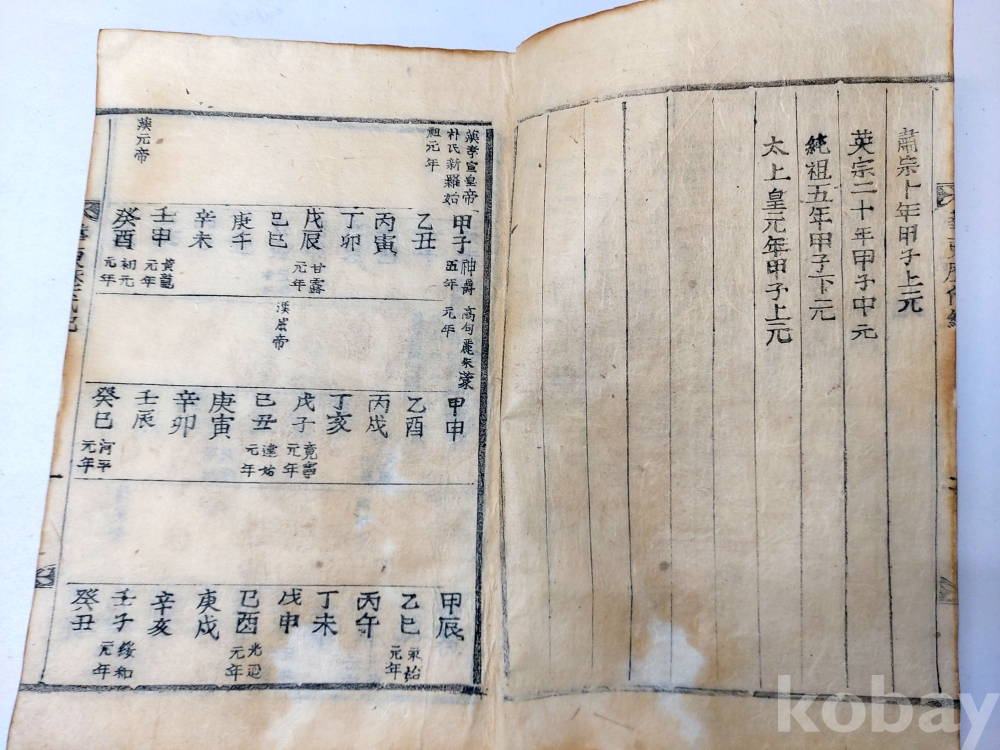 肅宗十年甲子上元
英宗二十年甲子中元
純祖五年甲子下元
太上皇元年甲子上元
漢孝宣皇帝
朴氏新羅始
祖元年
漢元帝
甲子 神爵五年 高句麗朱蒙元年
乙丑
丙寅
丁卯
戊辰 甘露元年
己巳
庚午
辛未
壬申 黃龍元年
癸酉 初元元年
漢成帝
甲申
乙酉
丙戌
丁亥
戊子 竟寧元年
己丑 建始元年
庚寅
辛卯
壬辰
癸巳 河平元年
甲辰
乙巳 永始元年
丙午
丁未
戊申
己酉 元延元年
庚戌
辛亥
壬子
癸丑 綏和元年
kobay